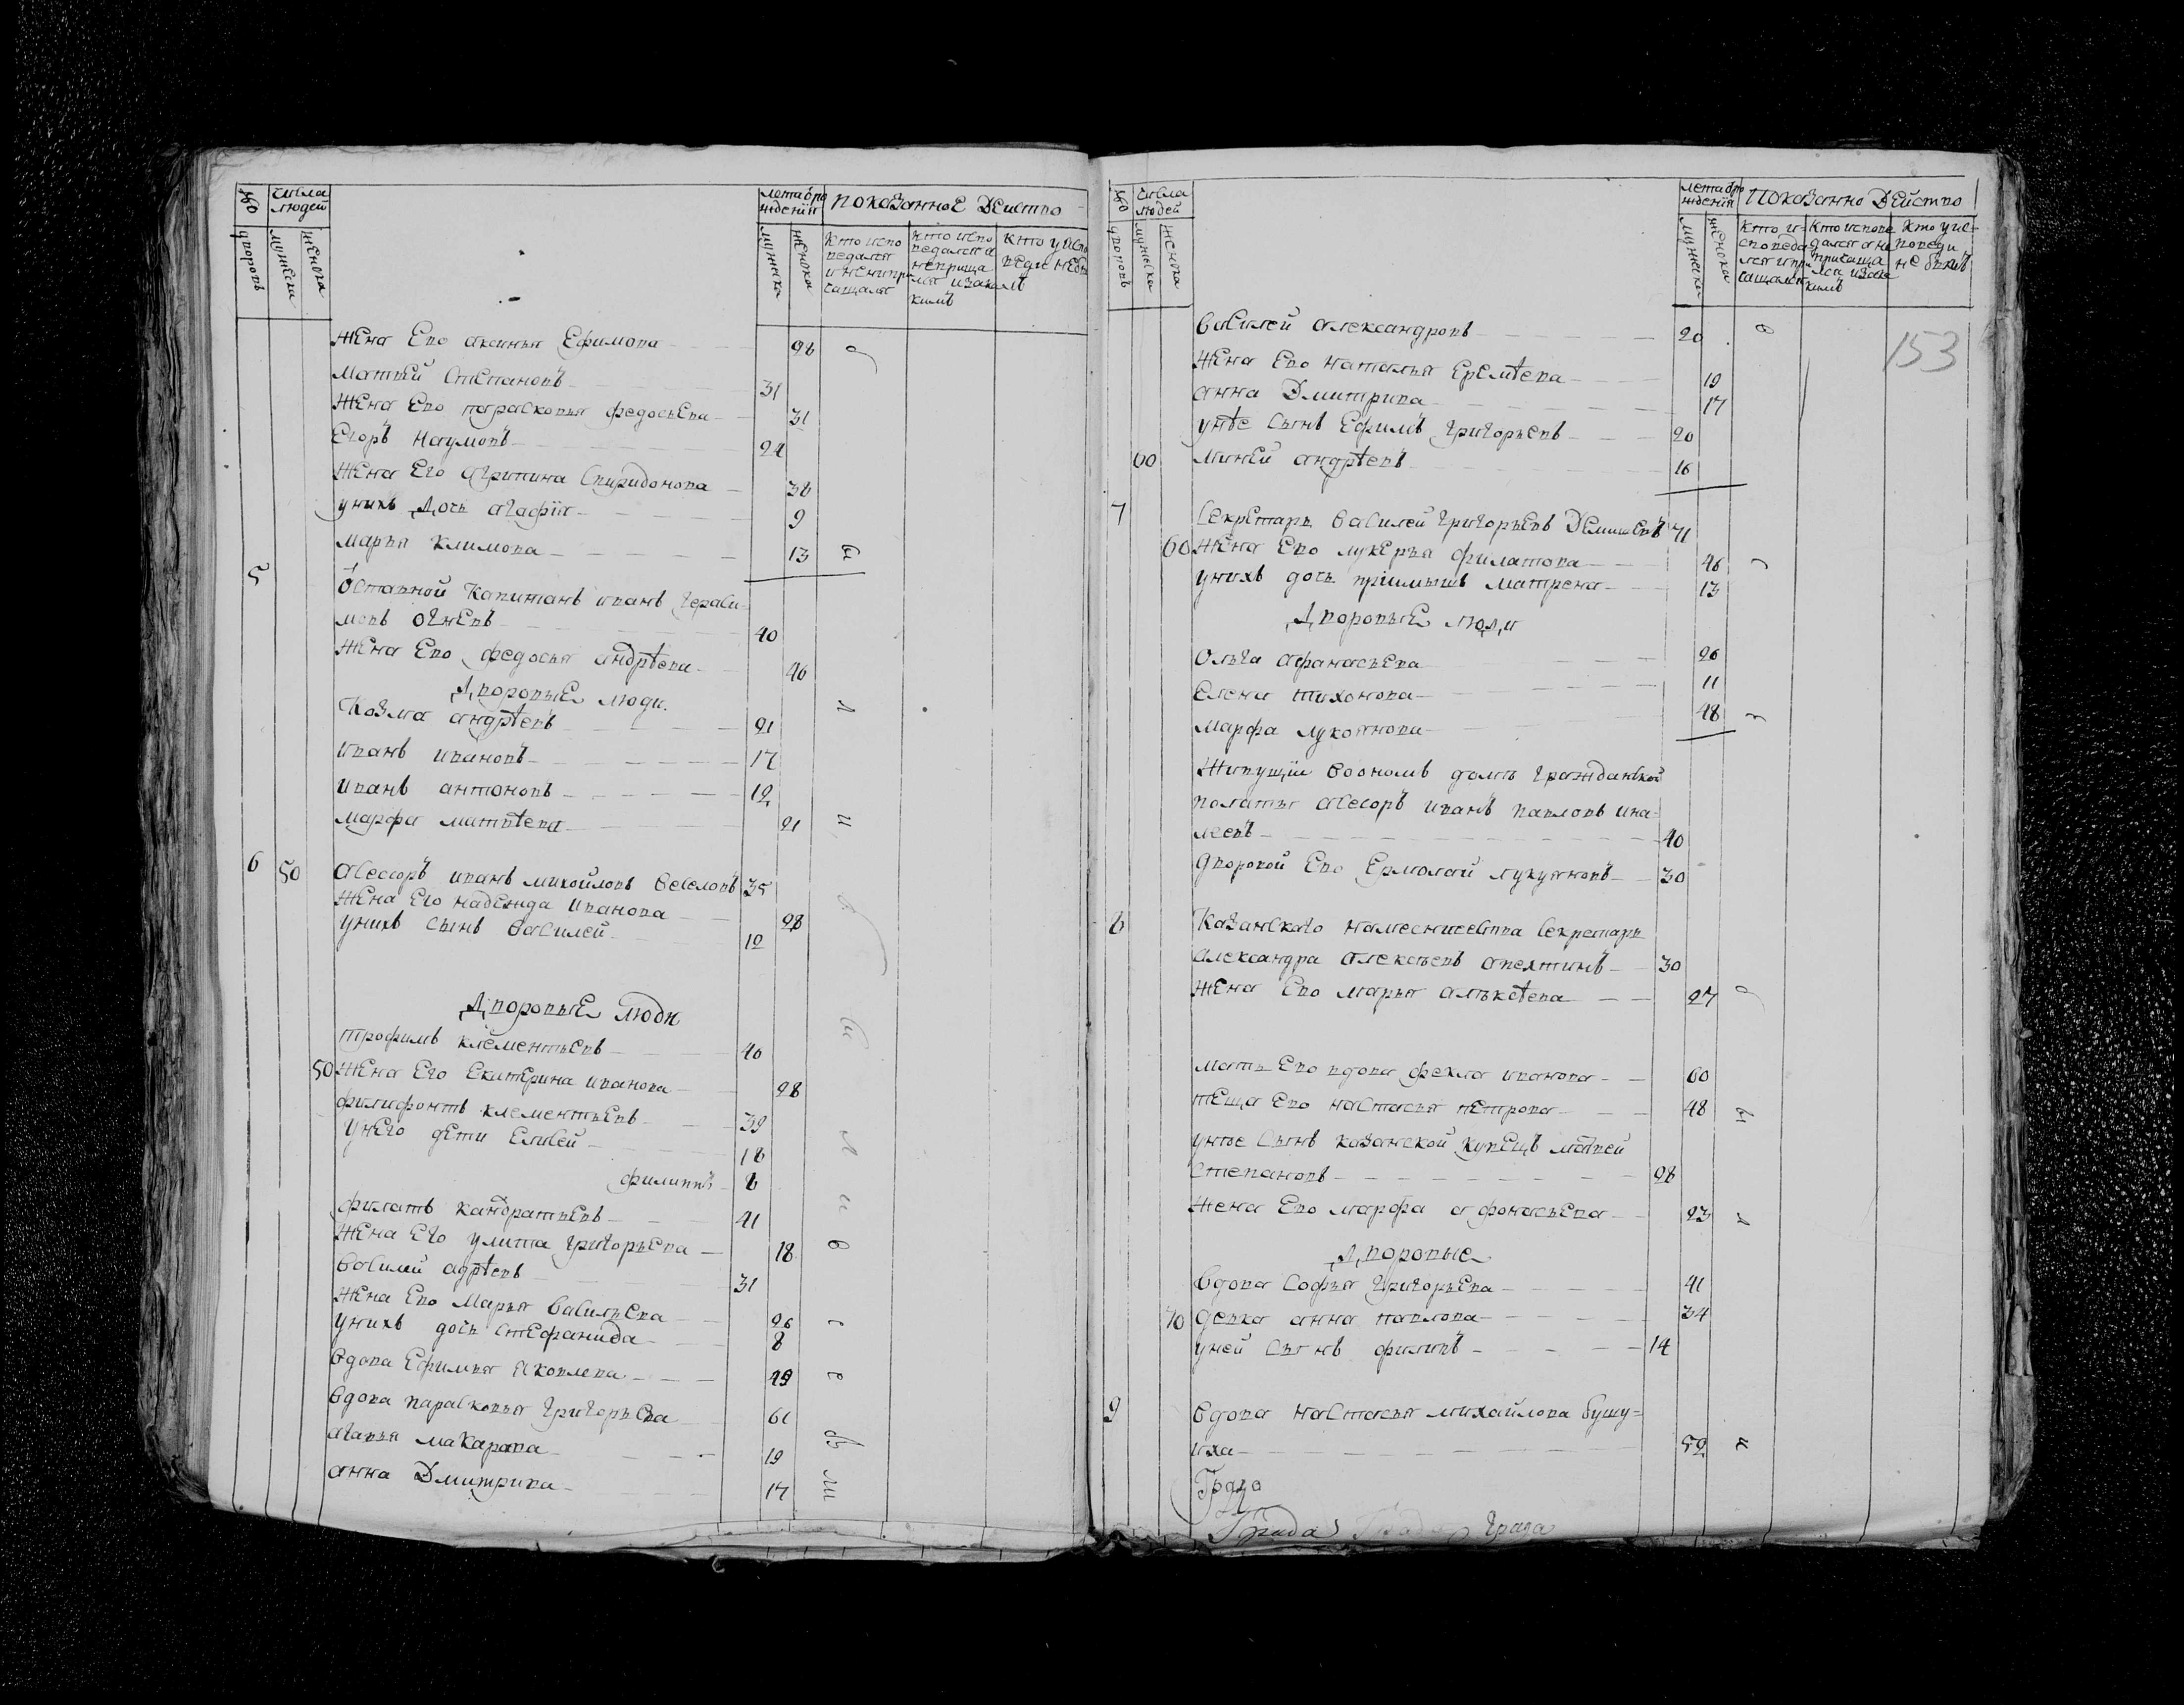 число
людей
дворовъ
мужска
женска
лета от ро
ждения
мужска
женска
показанное Действо
кто испо
ведался
и
причащался
кто испо
ведался а
не прича
кто у испо
веди не бы
лъ
Жена Ево аксинья Ефимова 26
Матвей Степановъ 31
Жена Ево парасковья федосьева 31
Егоръ Наумовъ 24
Жена Его Агрипина Спиридонова 38
у нихъ дочь Агафiя 9
Марья климова 13
5 Отставной капитанъ иванъ Гераси-
мовъ огневъ 40
Жена Ево федосья андрѣева 40
Дворовые люди
Козма андрѣевъ 21
иванъ ивановъ 17
иванъ антоновъ 12
марфа матвѣева 21
6 50 Асессоръ иванъ михойловъ веселовъ 35
Жена Его надежда иванова 28
у нихъ сынъ василей 10
Дворовые люди
трофимъ клементьевъ 40
50 Жена Его Екатерина иванова 28
филифонтъ клементьевъ 39
у него дети Елисей 18
филиппъ 8
филатъ кандратьевъ 41
Жена Его улита григорьева 18
василей адрѣевъ 31
Жена Ево Марья васильева 26
у нихъ дочь стефанида 8
вдова Ефимья яковлева 49
вдова парасковья григорьева 61
Агапья макарова 19
анна Дмитрива 17
число
людей
дворовъ
мужска
женска
лета от ро
ждения
мужска
женска
показанно Действо
кто и-
споведа
лся и при
чащался
кто испове
дался а не
прича
кто у ис-
поведи
не былъ
153
василей александровъ 20
Жена Ево наталья Еремѣева 19
анна Дмитрива 17
у нѣе сынъ Ефимъ григорьевъ 20
60 миней андрѣевъ 16
7 Секретарь василей григорьевъ Демишевъ 71
60 Жена Ево лукерья филатова 46
у нихъ дочь приимышъ матрена 13
Дворовые люди
Ольга афанасьева 26
Елена тихонова 11
марфа лукоянова 48
Живущiи во ономъ доме гражданской
полаты асесоръ иванъ павловъ ина-
месвъ 40
дворовой Ево Ермолай лукуяновъ 30
8 казанскаго наместничества секретарь
александра алексѣевъ апехтинъ 30
Жена Ево марья алѣксѣева 27
мать Ево вдова фекла иванова 60
тeща Ево настасья петрова 48
у нѣе сынъ казанской купецъ матвей
степановъ 28
жена Ево марфа афонасьева 23
Дворовые
вдова софья григорьева 41
70 девка анна павлова 34
у ней сынъ филипъ 14
9 вдова настасья михайлова бушу=
иха 52
Града
Града Града града